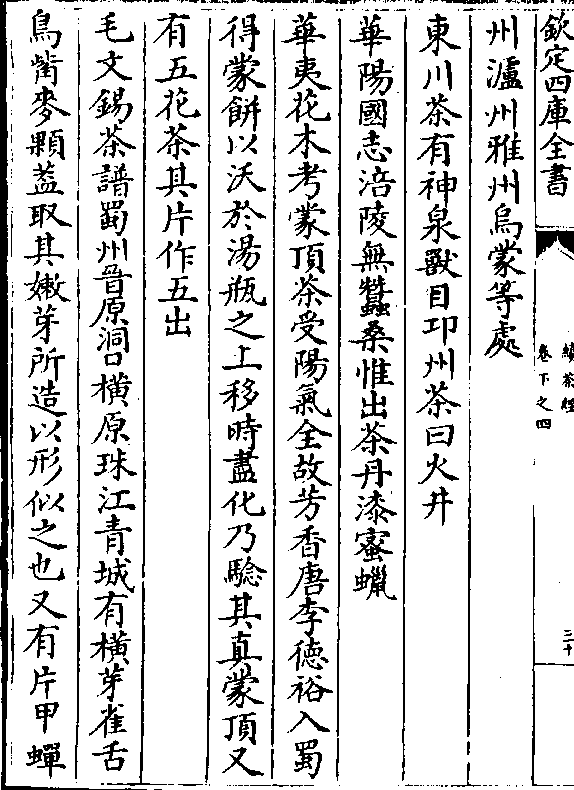 欽定四庫全書
續茶經
卷下之四
三十
州瀘州雅州烏蒙等處
東川茶有神泉獸目邛州茶曰火井
華陽國志涪陵無蠶桑惟出茶丹漆蜜蠟
華夷花木考蒙頂茶受陽氣全故芳香唐李徳裕入蜀
得蒙餅以沃於湯瓶之上移時盡化乃騐其真蒙頂又
有五花茶其片作五出
毛文錫茶譜蜀州晉原洞口橫原珠江青城有橫芽雀舌
鳥觜麥顆葢取其嫩芽所造以形似之也又有片甲蟬